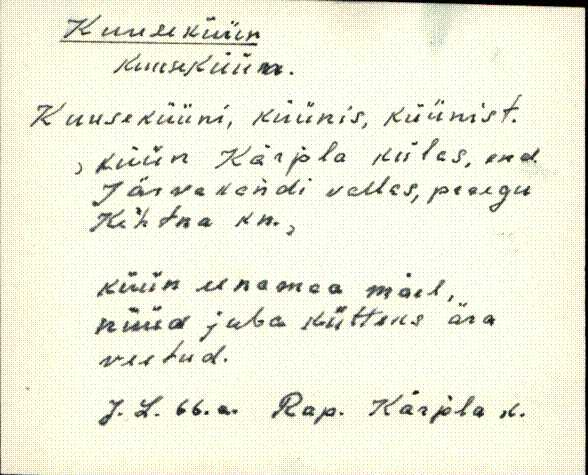 Kuuseküün
kuuseküün.
Kuuseküüni, küünis, küünist.
, küün Kärpla külas, end.
Järvakandi vallas, praegu
Kehtna kn.,
küün eenamaa mäel,
nüüd juba kütteks ära
veetud.
J. L. 66. a. Rap. Kärpla k.